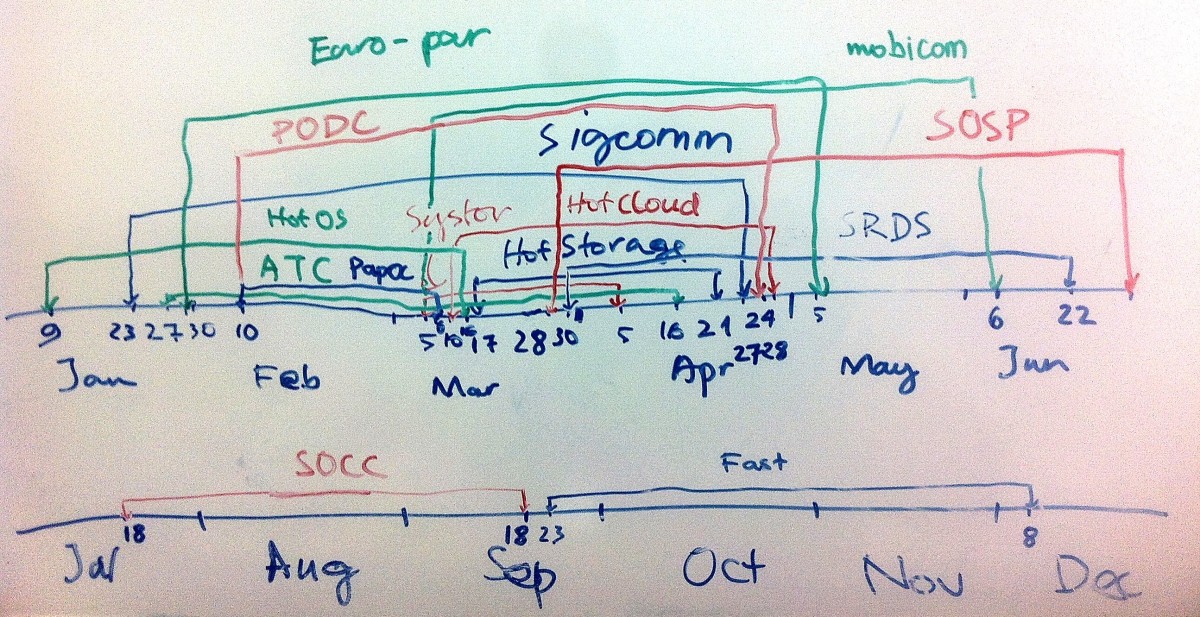 Euro-par
mobicom
PODC
Sigcomm
SOSP
HotOS
Systor
HotCloud
SRDS
ATC
Hot Storage
9
23
27
30
10
5
6
10
16
17
28
30
5
16
21
24
27
28
5
6
22
Jan
Feb
Mar
Apr
May
Jun
SOCC
Fast
18
18
23
8
Aug
Sep
Oct
Nov
Dec